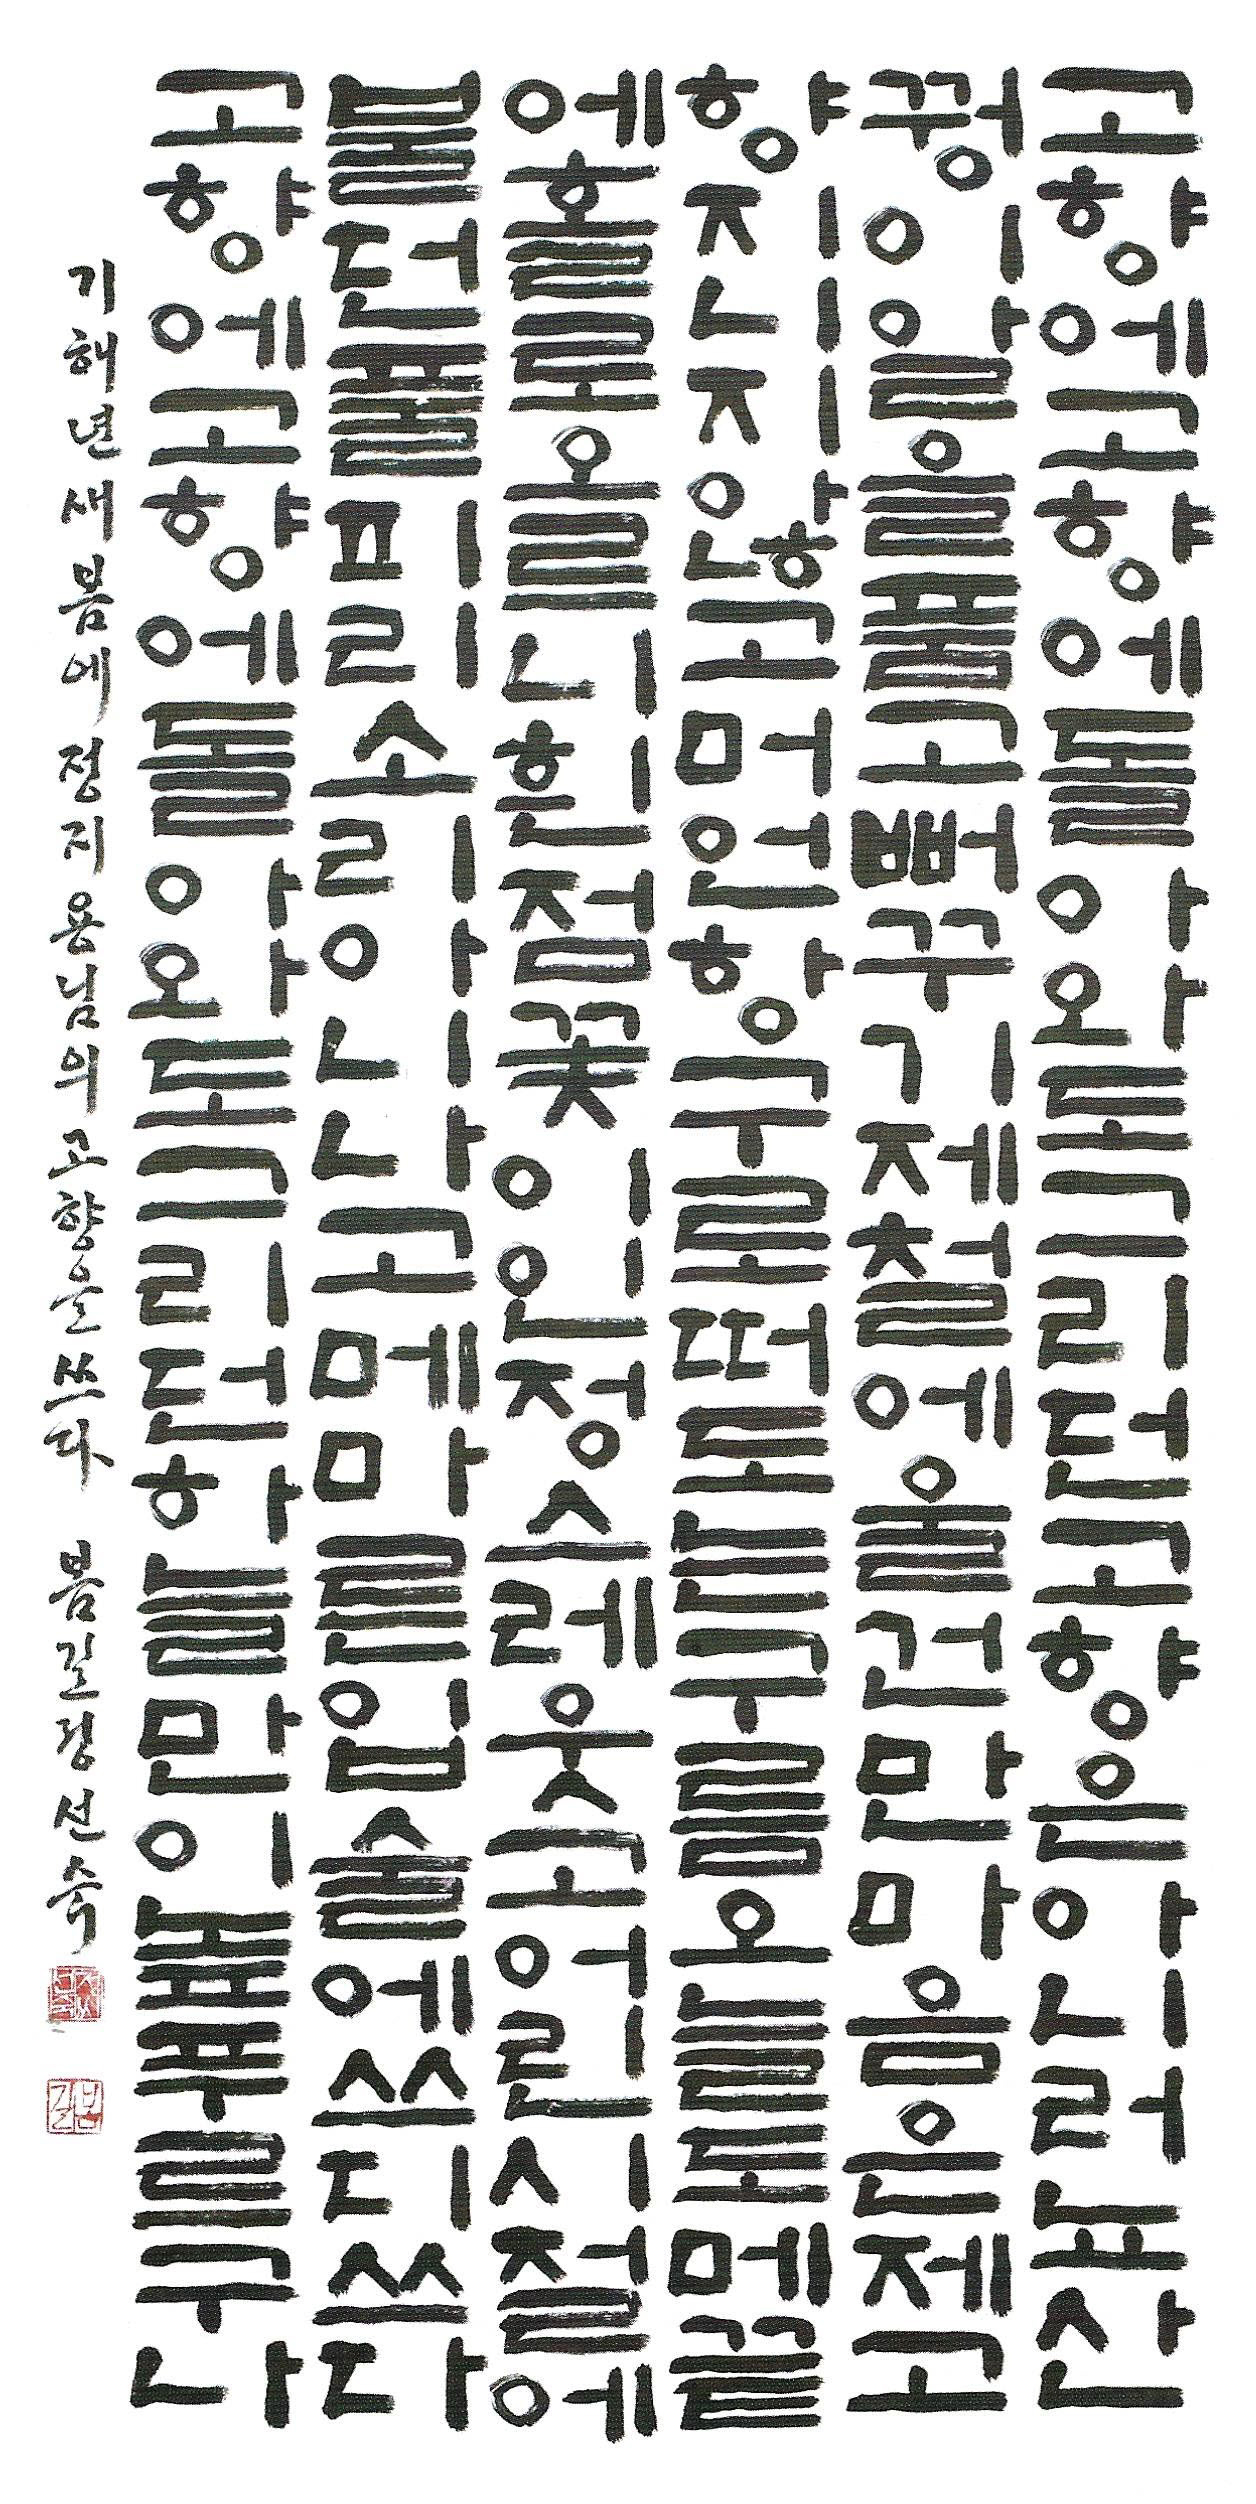 고향에고향에돌아와도그리던고향은아니러뇨산
꿩이알을품고뻐꾸기제철에울건만마음은제고
향지니지않고머언항구로떠도는구름오늘도메끝
에홀로오르니흰점꽃이인정스레웃고어린시절에
불던풀피리소리아니나고메마른입술에쓰디쓰다
고향에고향에돌아와도그리던하늘만이높푸르구나
기해년새봄에 정지용님의고향을쓰다 봄길정선숙
봄길